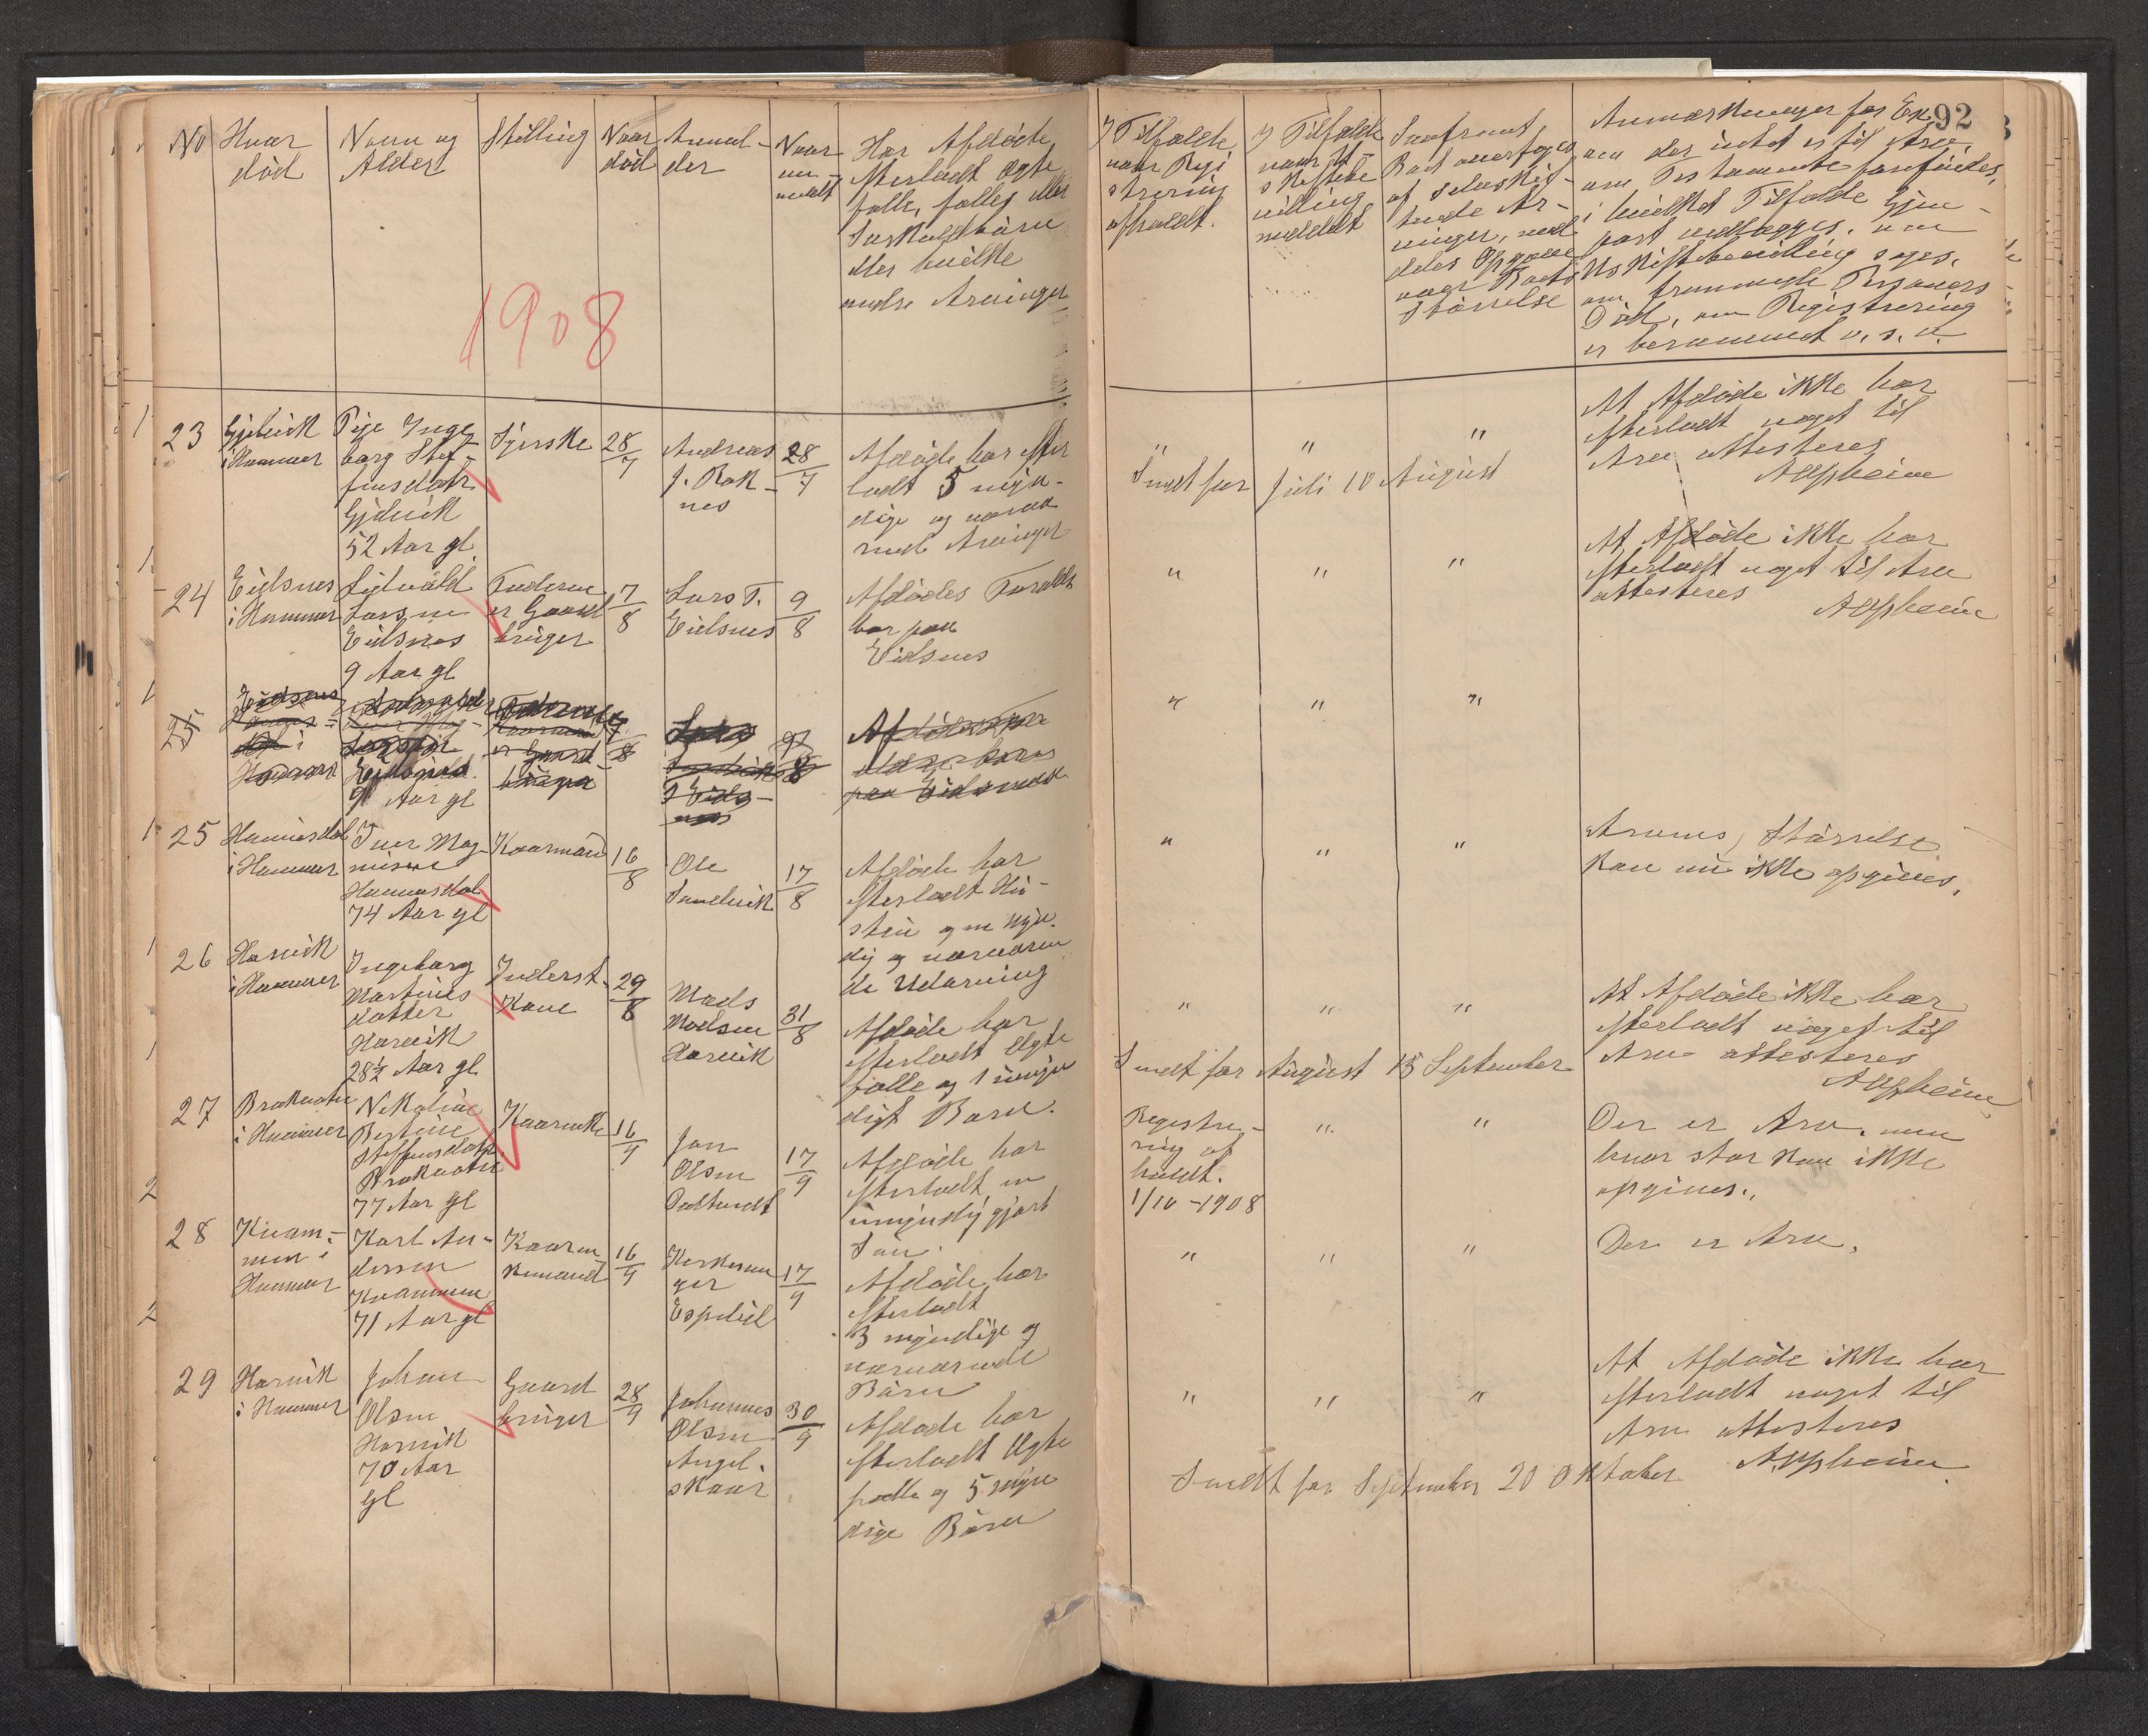 92
No
Hvar
död
Navn og
Alder
Stilling
Naar
död
Anmel-
der
Naar
an-
meldt
Har Afdöde
efterladt Ægte
fælle, fælles eller
Særkuldbörn
eller hvilke
andre Arvinger
I Tilfælde
naar Regi
strering
afholdt.
I Tilfælde
naar
Skifte
villing
meddelt
Samfrænt
Boet overtages
af selvskif-
tende Ar-
vinger, med
deles Opgave
over Boets
Störrelse
Anmærkninger for Ex.
om der intet er til Arv,
om Testamente forefindes,
i hvilket Tilfælde Gjen-
part vedlægges, om
Uskiftbevilling söges,
om fremmede Personers
Död, om Registrering
er berammet o. s. v.
1908
23
Gjelvik
i Hammer
Pije Inge
borg Stef-
fensdatr
Gjelvik
52 Aar gl.
Syerske
28/7
Andreas
J. Rok-
nes
28/7
Afdöde har efter
ladt 5 myn-
dige og nærvæ
rende Arvinger
" " "
At Afdöde ikke har
efterladt noget til
Arv attesteres
Aspheim
Sendt for Juli 10 August
24
Eidsnes
i Hammer
Sigvald
Larsen
Eidsnes
9 Aar gl
Faderen
er Gaard
bruger
7/8
Lars T.
Eidsnes
9/8
Afdödes Forældre
bor paa
Eidsnes
" " "
At Afdöde ikke har
efterladt noget til Arv
attesteres
Aspheim
25
9 Aar gl
" " "
25
Hannisdal
i Hammer
Iver Mag-
nisen
Hannisdal
74 Aar gl
Kaarmand
16/8
Ole
Sandvik
17/8
Afdöde har
efterladt Hu-
stru og en myn-
dig og nærværen
de Udarving
" " "
Arvens Störrelse
kan nu ikke opgives.
26
Horvik
i Hammer
Ingeborg
Martines
datter
Horvik
28½ Aar gl.
Inderst
Kone
29/8
Mads
Madsen
Horvik
31/8
Afdöde har
efterladt Ægte
fælle og 1 umyn
digt Barn.
" " "
At Afdöde ikke har
efterladt noget til
Arv attesteres
Aspheim
Sendt for August 15 September
27
i Hammer
Nikoline
Bertine
Steffensdatr
77 Aar gl
Kaarenke
16/9
Jon
Olsen
Daltveit
17/9
Afdöde har
efterladt en
umyndiggjort
Sön.
Registre-
ring af
holdt.
1/10-1908
" "
Der er Arv. men
hvor stor kan ikke
opgives.
28
Kvam-
men i
Hammer
Karl An-
dersen
Kvammen
71 Aar gl
Kaaren
kemand
16/9
Kirkesan
ger
Espelid
17/9
Afdöde har
efterladt
3 myndige og
nærværende
Börn
" " "
Der er Arv.
29
Horvik
i Hammer
Johan
Olsen
Horvik
70 Aar
gl
Gaard
bruger
28/9
Johannes
Olsen
Angel-
skaar
30/9
Afdöde har
efterladt Ægte
fælle og 5 myn
dige Börn
" " "
At Afdöde ikke har
efterladt noget til
Arv attesteres
Aspheim
Sendt for September 20 Oktober